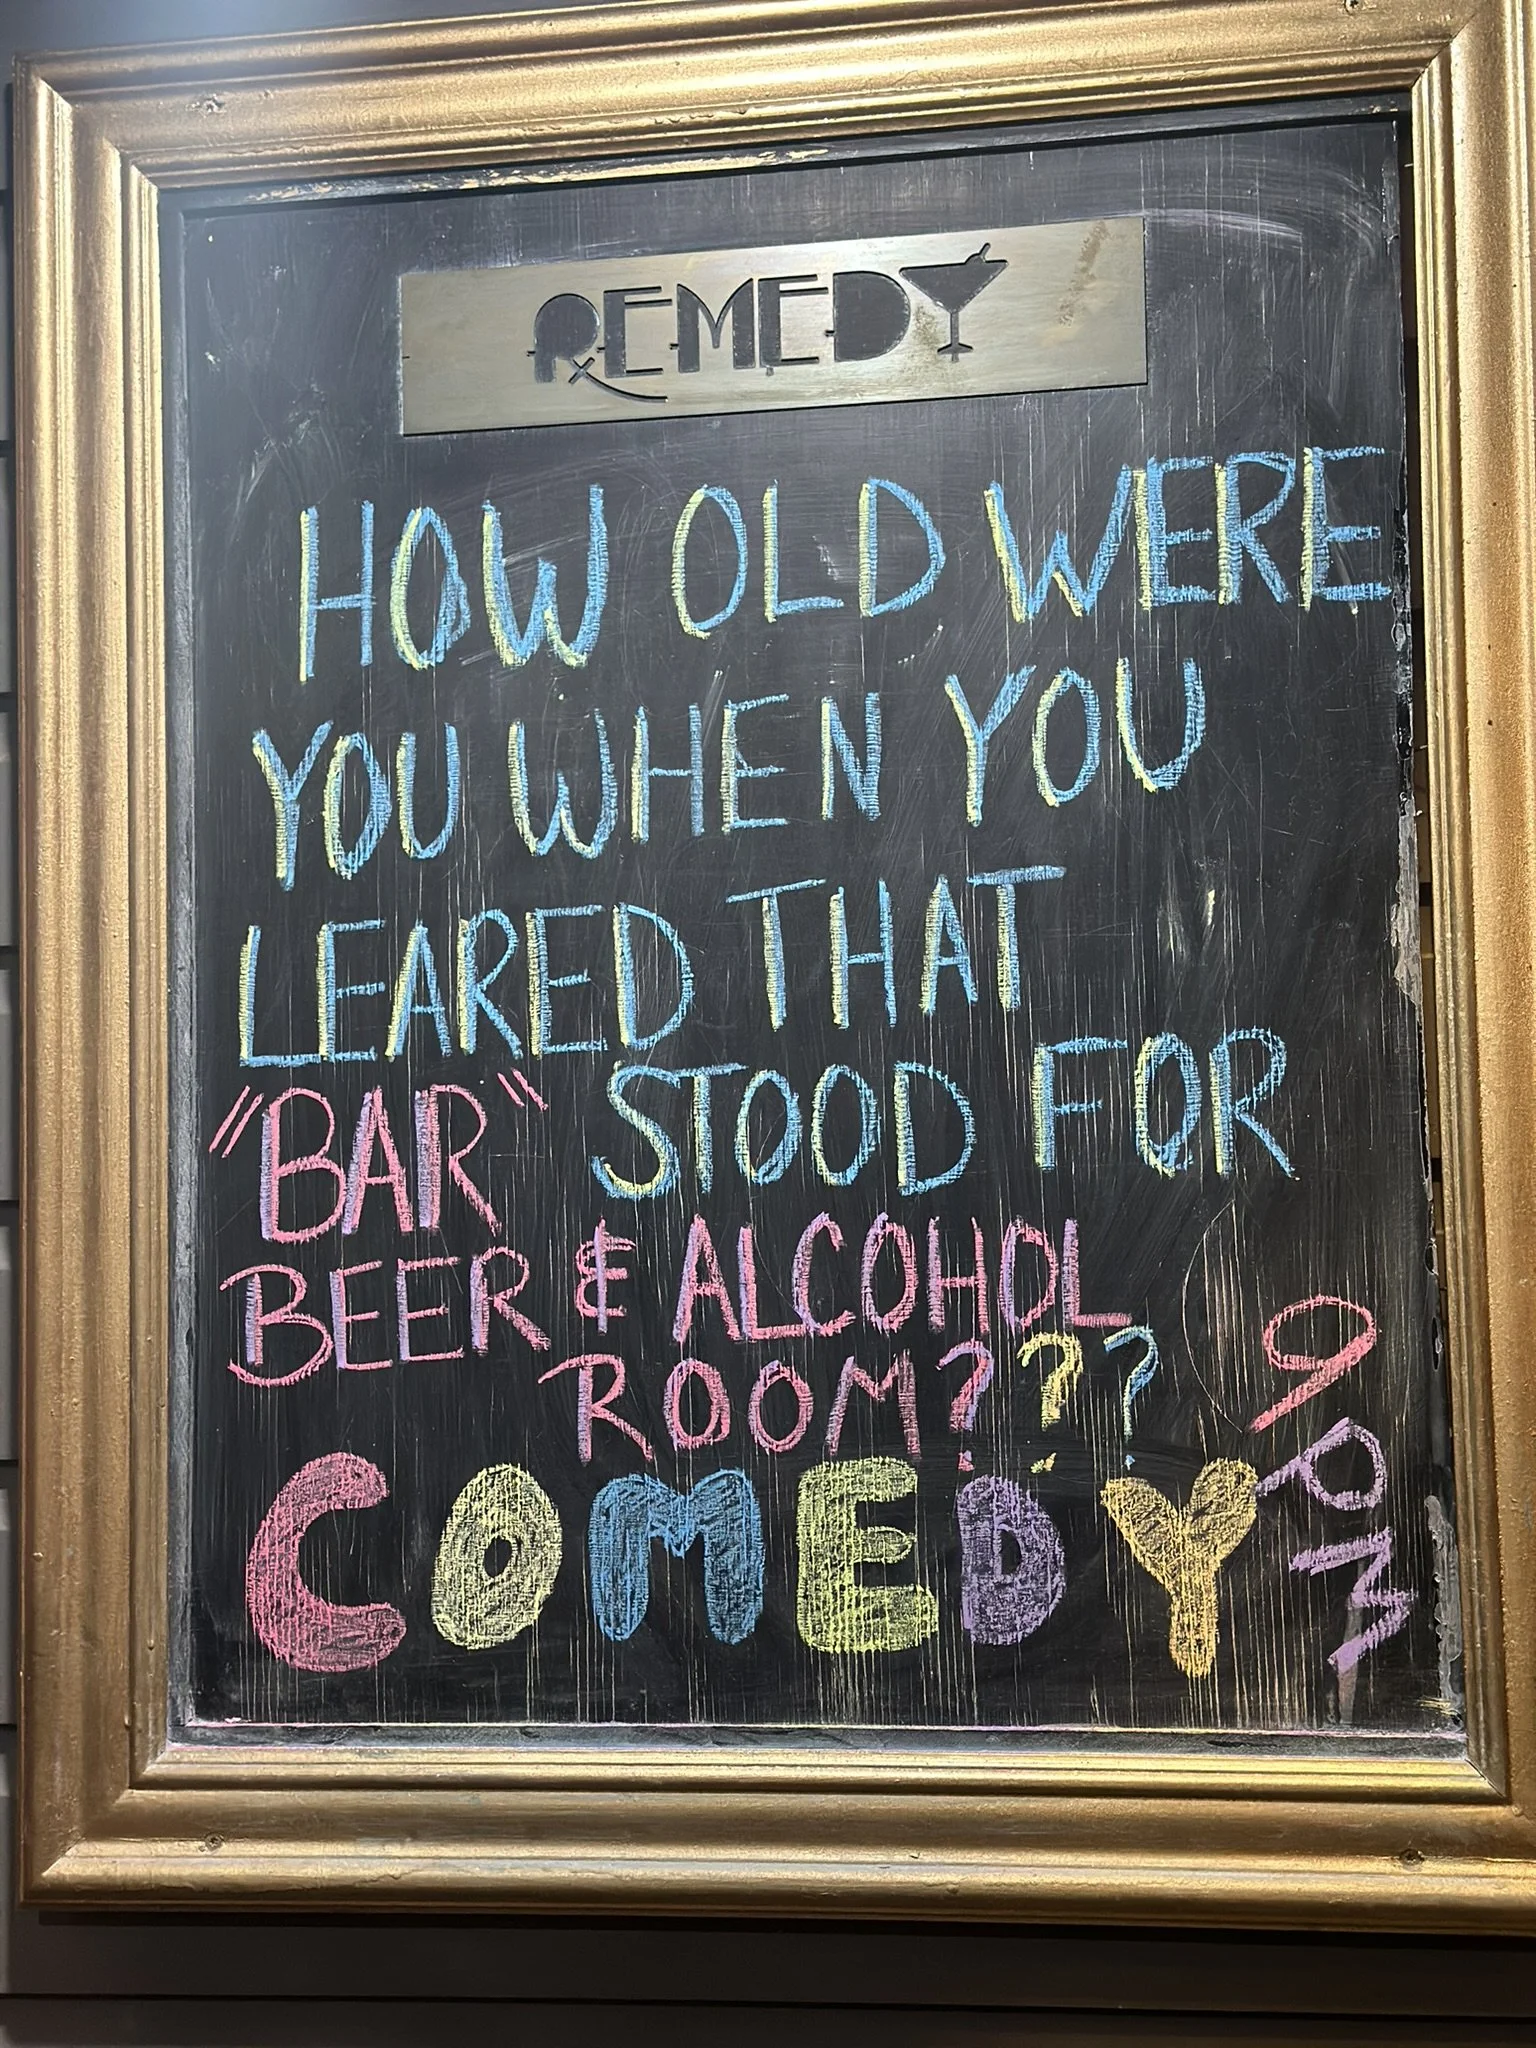 REMEDY
HOW OLD WERE
YOU WHEN YOU
LEARED THAT
"BAR" STOOD FOR
BEER & ALCOHOL
ROOM???
COMEDY
9PM